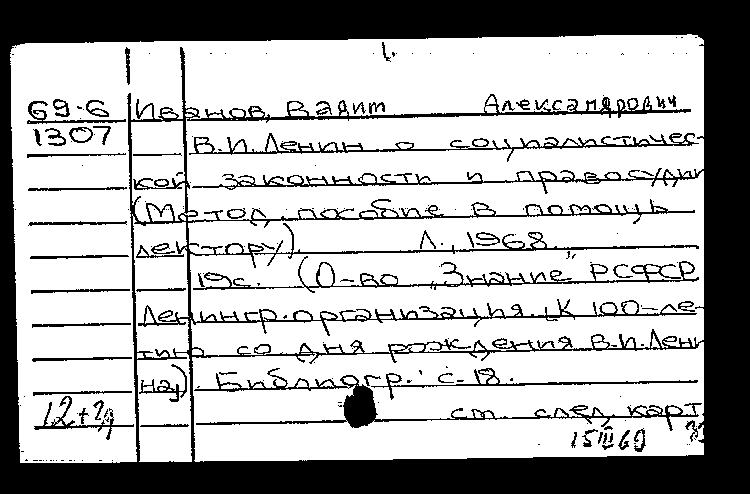 1.
69-6 Иванов, Вадим Александрович
1307 В.И.Ленин о социалистичес-
кой законности и правосудии
(Метод. пособие в помощь
лектору). Л., 1968.
19с. (О-во „Знание" РСФСР
Ленингр.организация. [К 100-ле-
тию со дня рождения В.И.Лени
на]). Библиогр.: с.18.
см. след. карт.
15 III 69